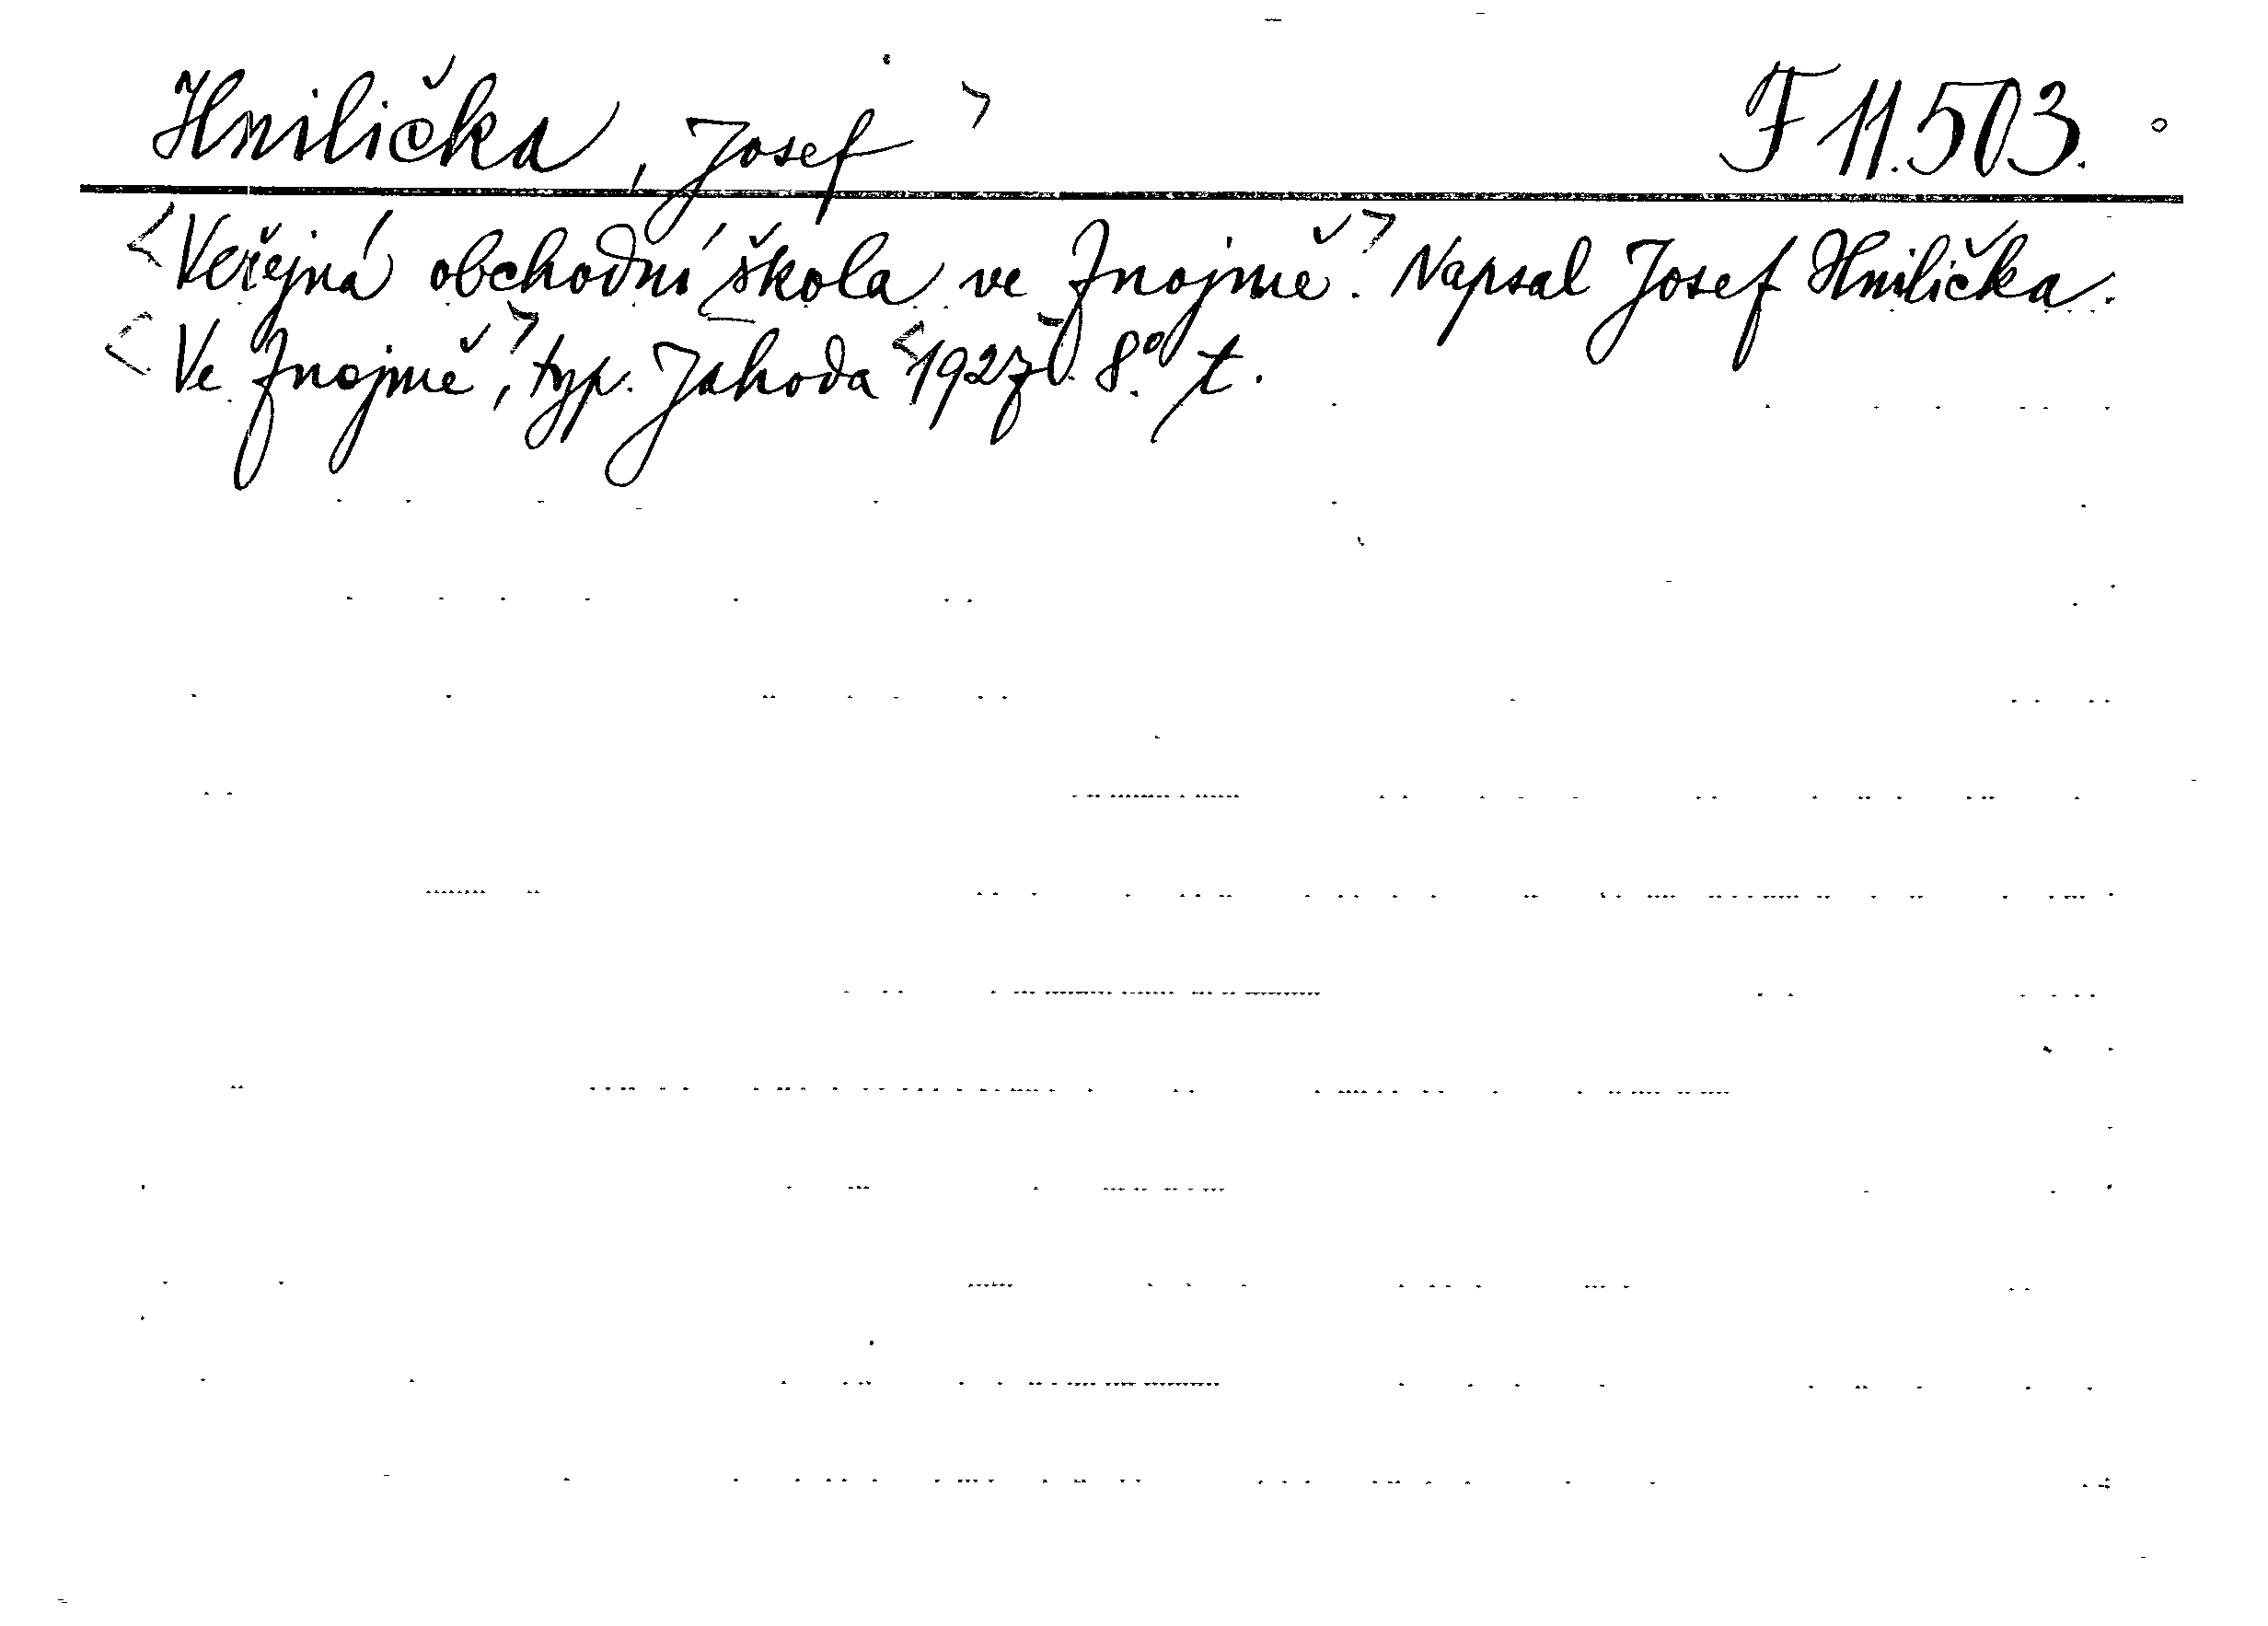 Hnilička, Josef > F 11.503.
<Veřejná obchodní škola ve Znojmě.> Napsal Josef Hnilička.
<Ve Znojmě>, typ. Jahoda <1927>. 8.° t.